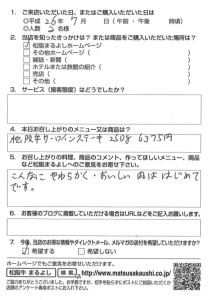 1. ご来店いただいた日、またはご購入いただいた日は
◎平成 26年 7月 日(午前・午後 時頃)
◎人数 2 名様
2. 当店を知ったきっかけは?または商品をご購入いただいた場所は?
☑松阪まるよしホームページ
□その他ホームページ( )
□雑誌・新聞( )
□ホテルまたは旅館の紹介( )
□売店( )
□その他( )
3. サービス(接客態度)はどうでしたか?
4. 本日お召し上がりのメニュー又は商品は?
松阪牛サーロインステーキ 250g 6375円
5. お召し上がりの料理、商品のコメント、作ってほしいメニュー、商品
など松阪まるよしへのご意見をお聞かせ下さい。
こんなに やわらかく・おいしい 肉は はじめて
です。
6. お客様のブログに掲載していただける場合はURLなどをご記入お願いします。
7. 今後、当店のお得な情報やダイレクトメール、メルマガの送付を希望していただけますか?
☑希望する □希望しない
ホームページでもご意見をお寄せいただけます。
松阪牛 まるよし 検索 http://www.matsusakaushi.co.jp/